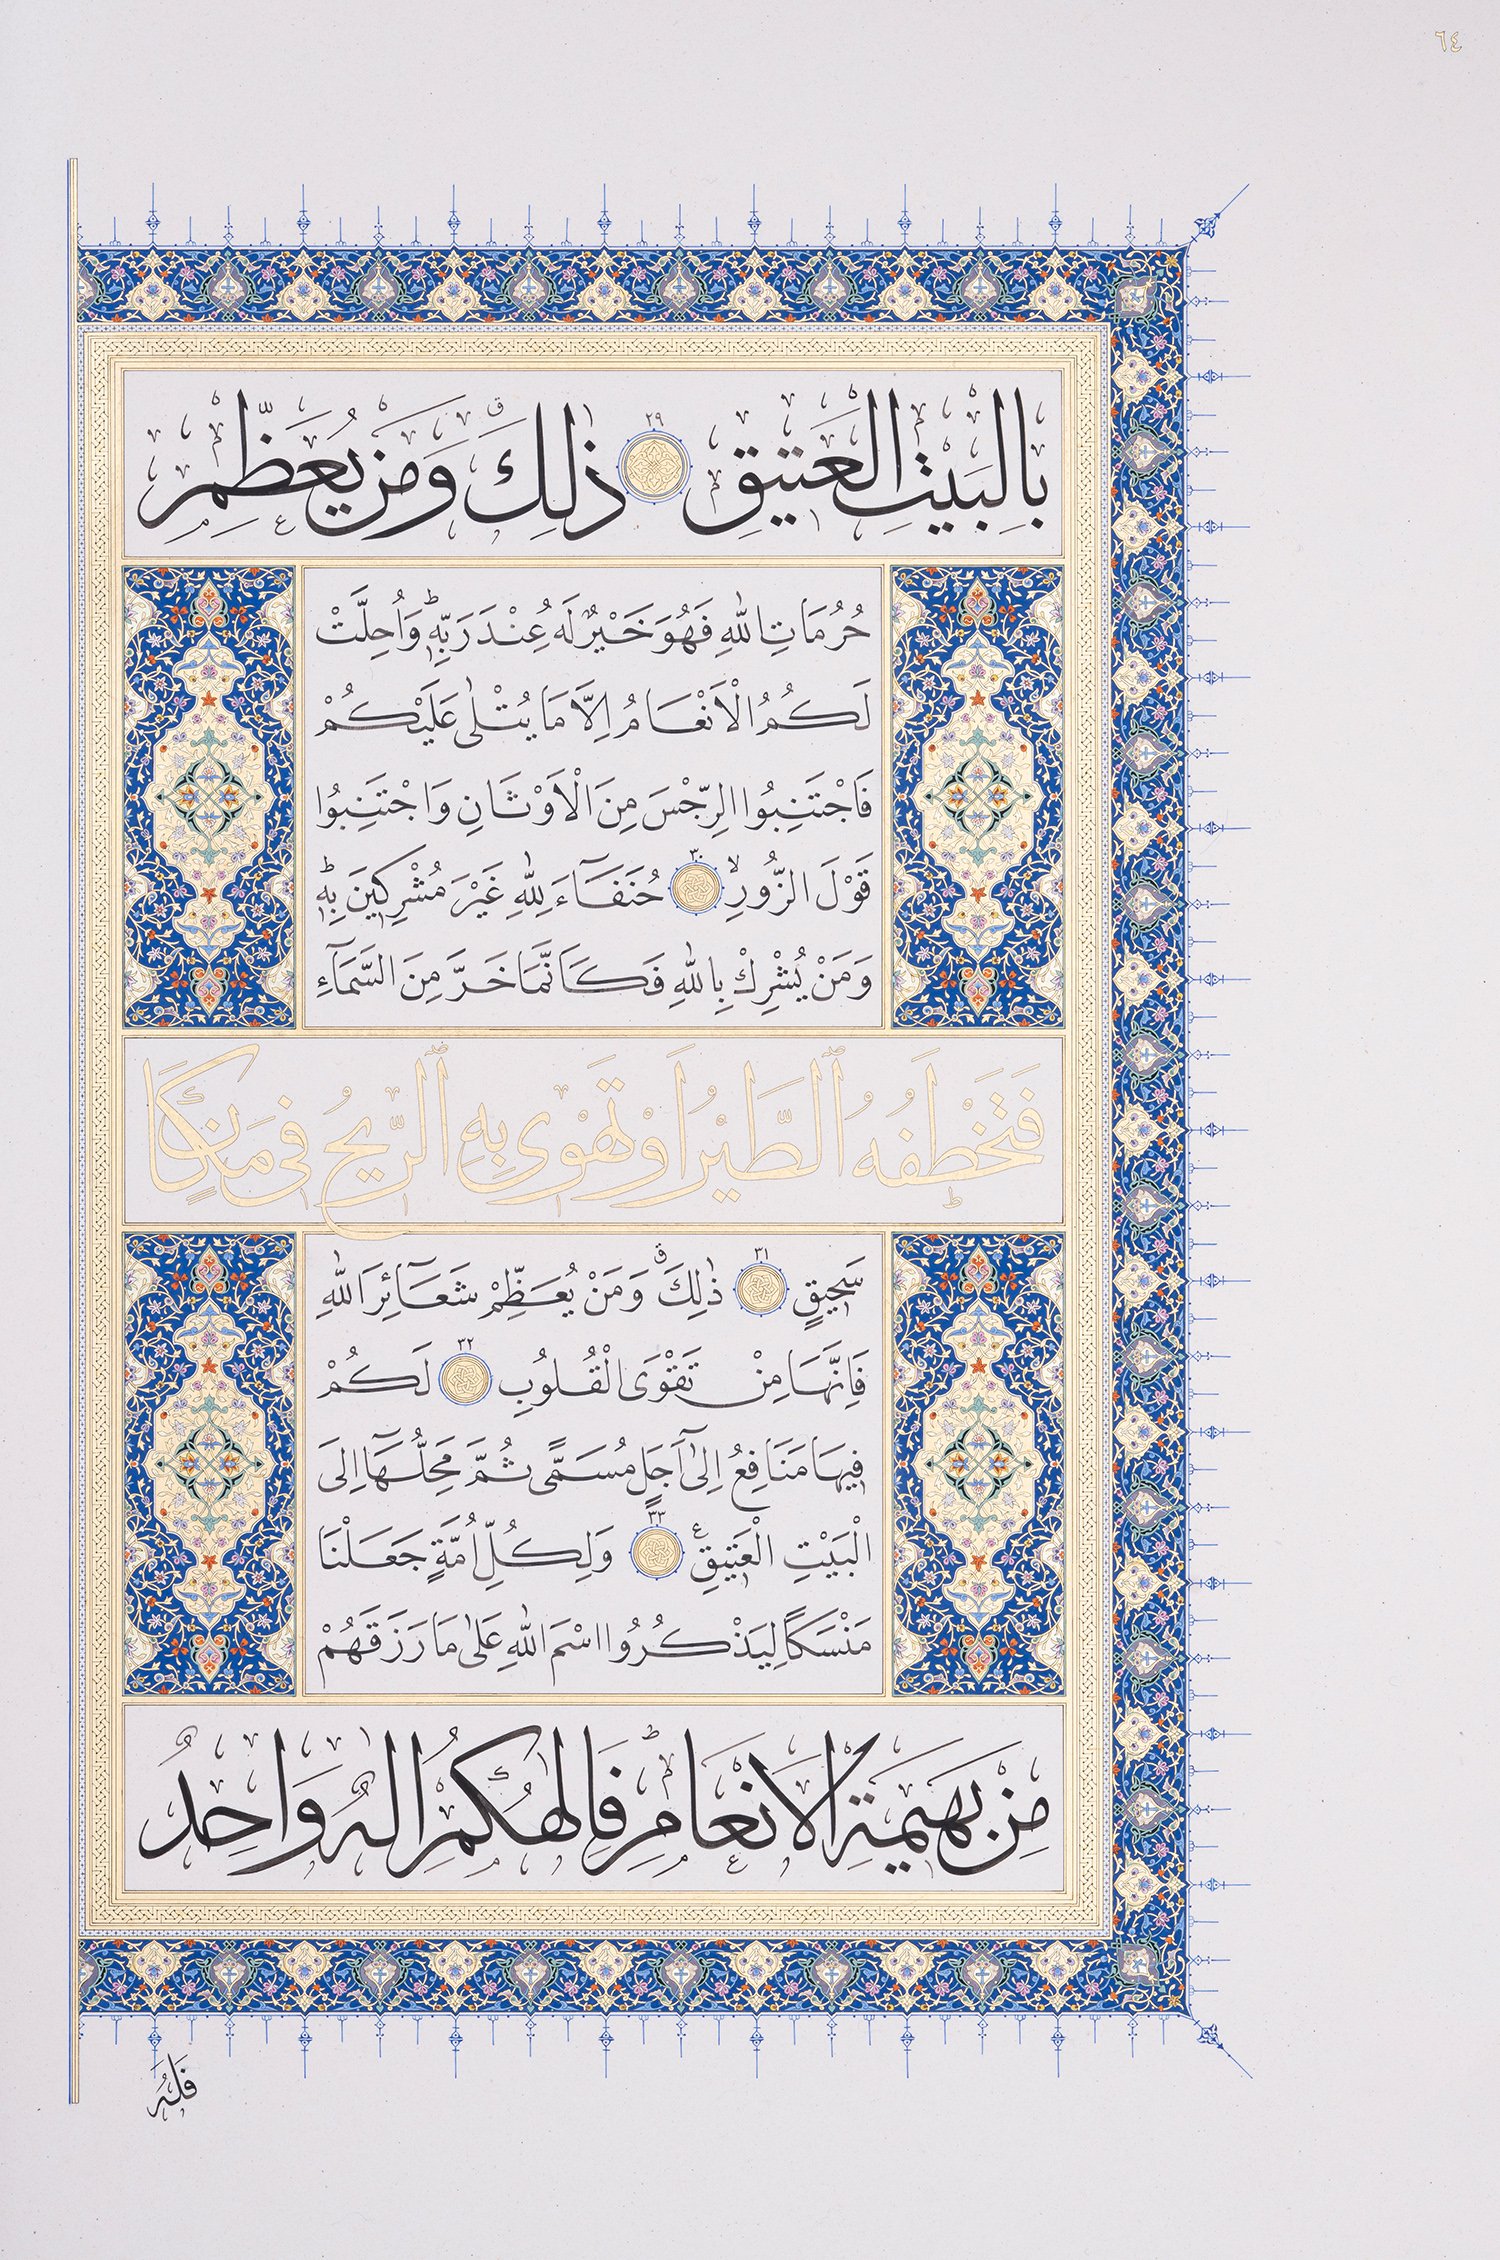 ٦٤
بِالْبَيْتِ الْعَتِيقِ ٢٩ ذٰلِكَ ۗ وَمَنْ يُعَظِّمْ
حُرُمَاتِ اللّٰهِ فَهُوَ خَيْرٌ لَهُ عِنْدَ رَبِّهٖ ؕ وَاُحِلَّتْ
لَكُمُ الْاَنْعَامُ اِلَّا مَا يُتْلٰى عَلَيْكُمْ
فَاجْتَنِبُوا الرِّجْسَ مِنَ الْاَوْثَانِ وَاجْتَنِبُوا
قَوْلَ الزُّورِ ۙ ٣٠ حُنَفَآءَ لِلّٰهِ غَيْرَ مُشْرِكِينَ بِهٖ ؕ
وَمَنْ يُشْرِكْ بِاللّٰهِ فَكَاَنَّمَا خَرَّ مِنَ السَّمَآءِ
فَتَخْطَفُهُ ٱلطَّيْرُ اَوْ تَهْوِى بِهِ ٱلرِّيحُ فِى مَكَانٍ
سَحِيقٍ ٣١ ذٰلِكَ ۗ وَمَنْ يُعَظِّمْ شَعَآئِرَ اللّٰهِ
فَاِنَّهَا مِنْ تَقْوَى الْقُلُوبِ ٣٢ لَكُمْ
فِيهَا مَنَافِعُ اِلٰٓى اَجَلٍ مُسَمًّى ثُمَّ مَحِلُّهَآ اِلَى
الْبَيْتِ الْعَتِيقِ ع ٣٣ وَلِكُلِّ اُمَّةٍ جَعَلْنَا
مَنْسَكًا لِيَذْكُرُوا اسْمَ اللّٰهِ عَلٰى مَا رَزَقَهُمْ
مِنْ بَهِيمَةِ الْاَنْعَامِ ؕ فَاِلٰهُكُمْ اِلٰهٌ وَاحِدٌ
فَلَهُ